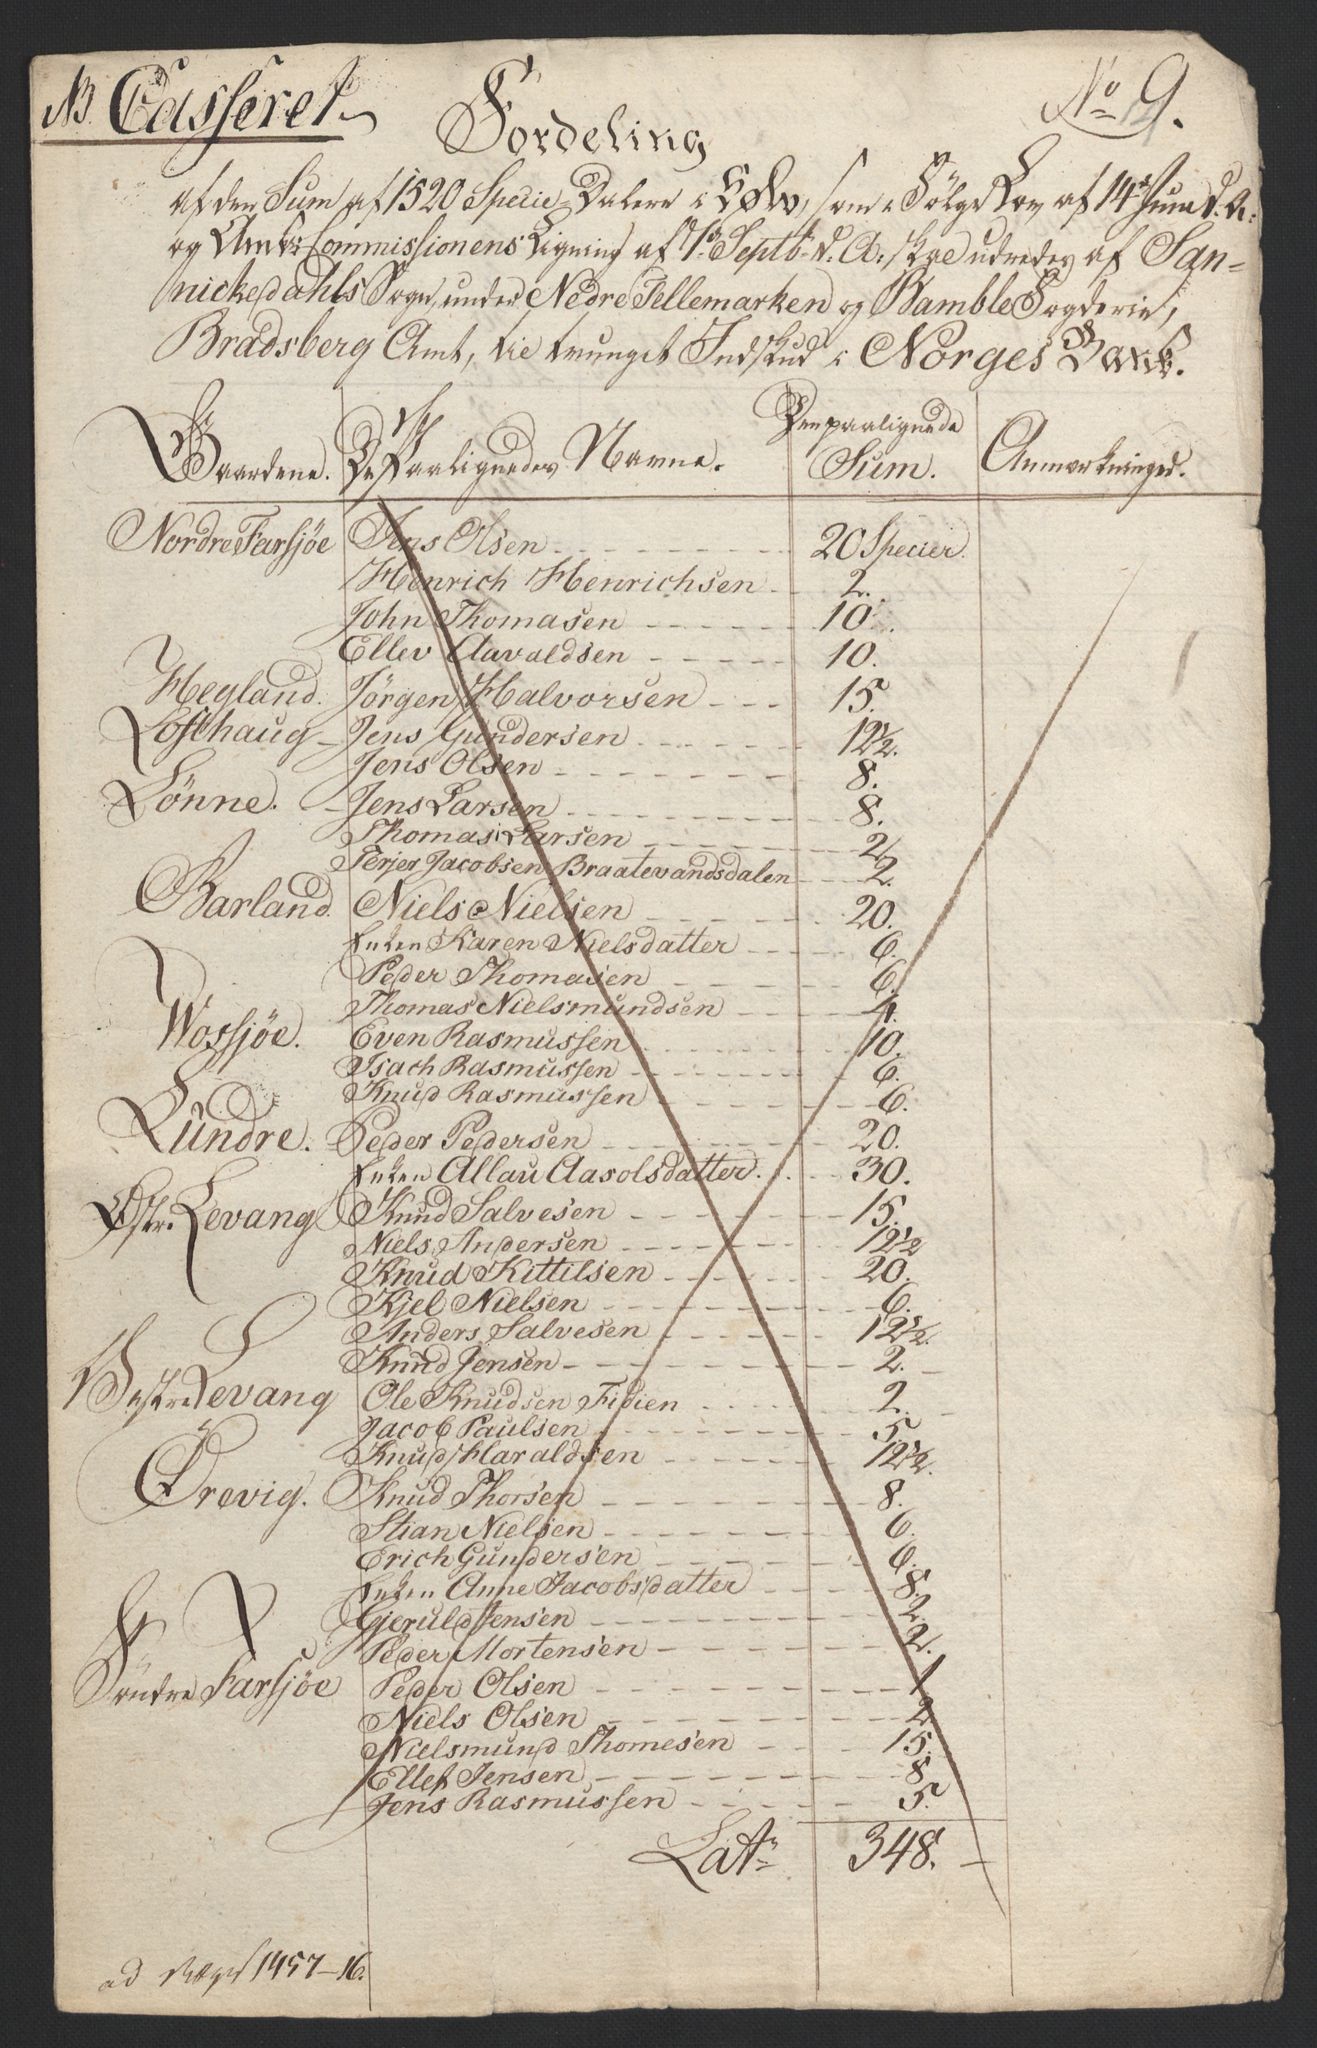 NB Casseret
No 9.
Fordeling
af den Sum af 1520 Specie-Dalere i Sølv, som i Følge Lov af 14de Juni d. A:
og Amts Commissionens Ligning af 7de Septb. d. A: skal udredes af San-
nickedahls Sogn, under Nedre Tellemarken og Bamble Fogderie,
Bradsberg Amt, til tvunget Indskud i Norges Bank.
Gaardene. De Paalignedes Navne. Den paalignede Sum. Anmærkninger.
Nordre Farsjøe Jens Olsen 20 Specier.
Henrich Henrichsen 2.
John Thomasen 10.
Ellev Aavaldsen 10.
Hegland. Jørgen Halvorsen 15.
Lofthaug Jens Gundersen 12½.
Jens Olsen 8.
Lønne. Jens Larsen 8.
Thomas Larsen 2
Terjer Jacobsen Braatevandsdalen 2.
Barland. Niels Nielsen 20.
Enken Karen Nielsdatter 6.
Peder Thomasen 6.
Thomas Nielsmundsen 4.
Wossjøe. Even Rasmussen 10.
Isach Rasmussen 6.
Knud Rasmussen 6.
Lundre. Peder Pedersen 20.
Enken Allau Aasolsdatter. 30.
Østr. Levang Knud Salvesen 15.
Niels Andersen 12½
Knud Kittilsen 20.
Kjel Nielsen 6.
Anders Salvesen 12½.
Knud Jensen 2.
Vestre Levang Ole Knudsen Fidien 2.
Jacob Paulsen 5.
Knud Haraldsen 12½.
Ørevig. Knud Thorsen 8.
Stian Nielsen 6.
Erich Gundersen 6.
Enken Anne Jacobsdatter 8.
Gjeruld Jensen 2.
Peder Mortensen 2.
Søndre Farsjøe Peder Olsen 1
Niels Olsen 2
Nielsmund Thomesen 15.
Ellef Jensen 8
Jens Rasmussen 5.
Lat. 348.
ad 1457-16.